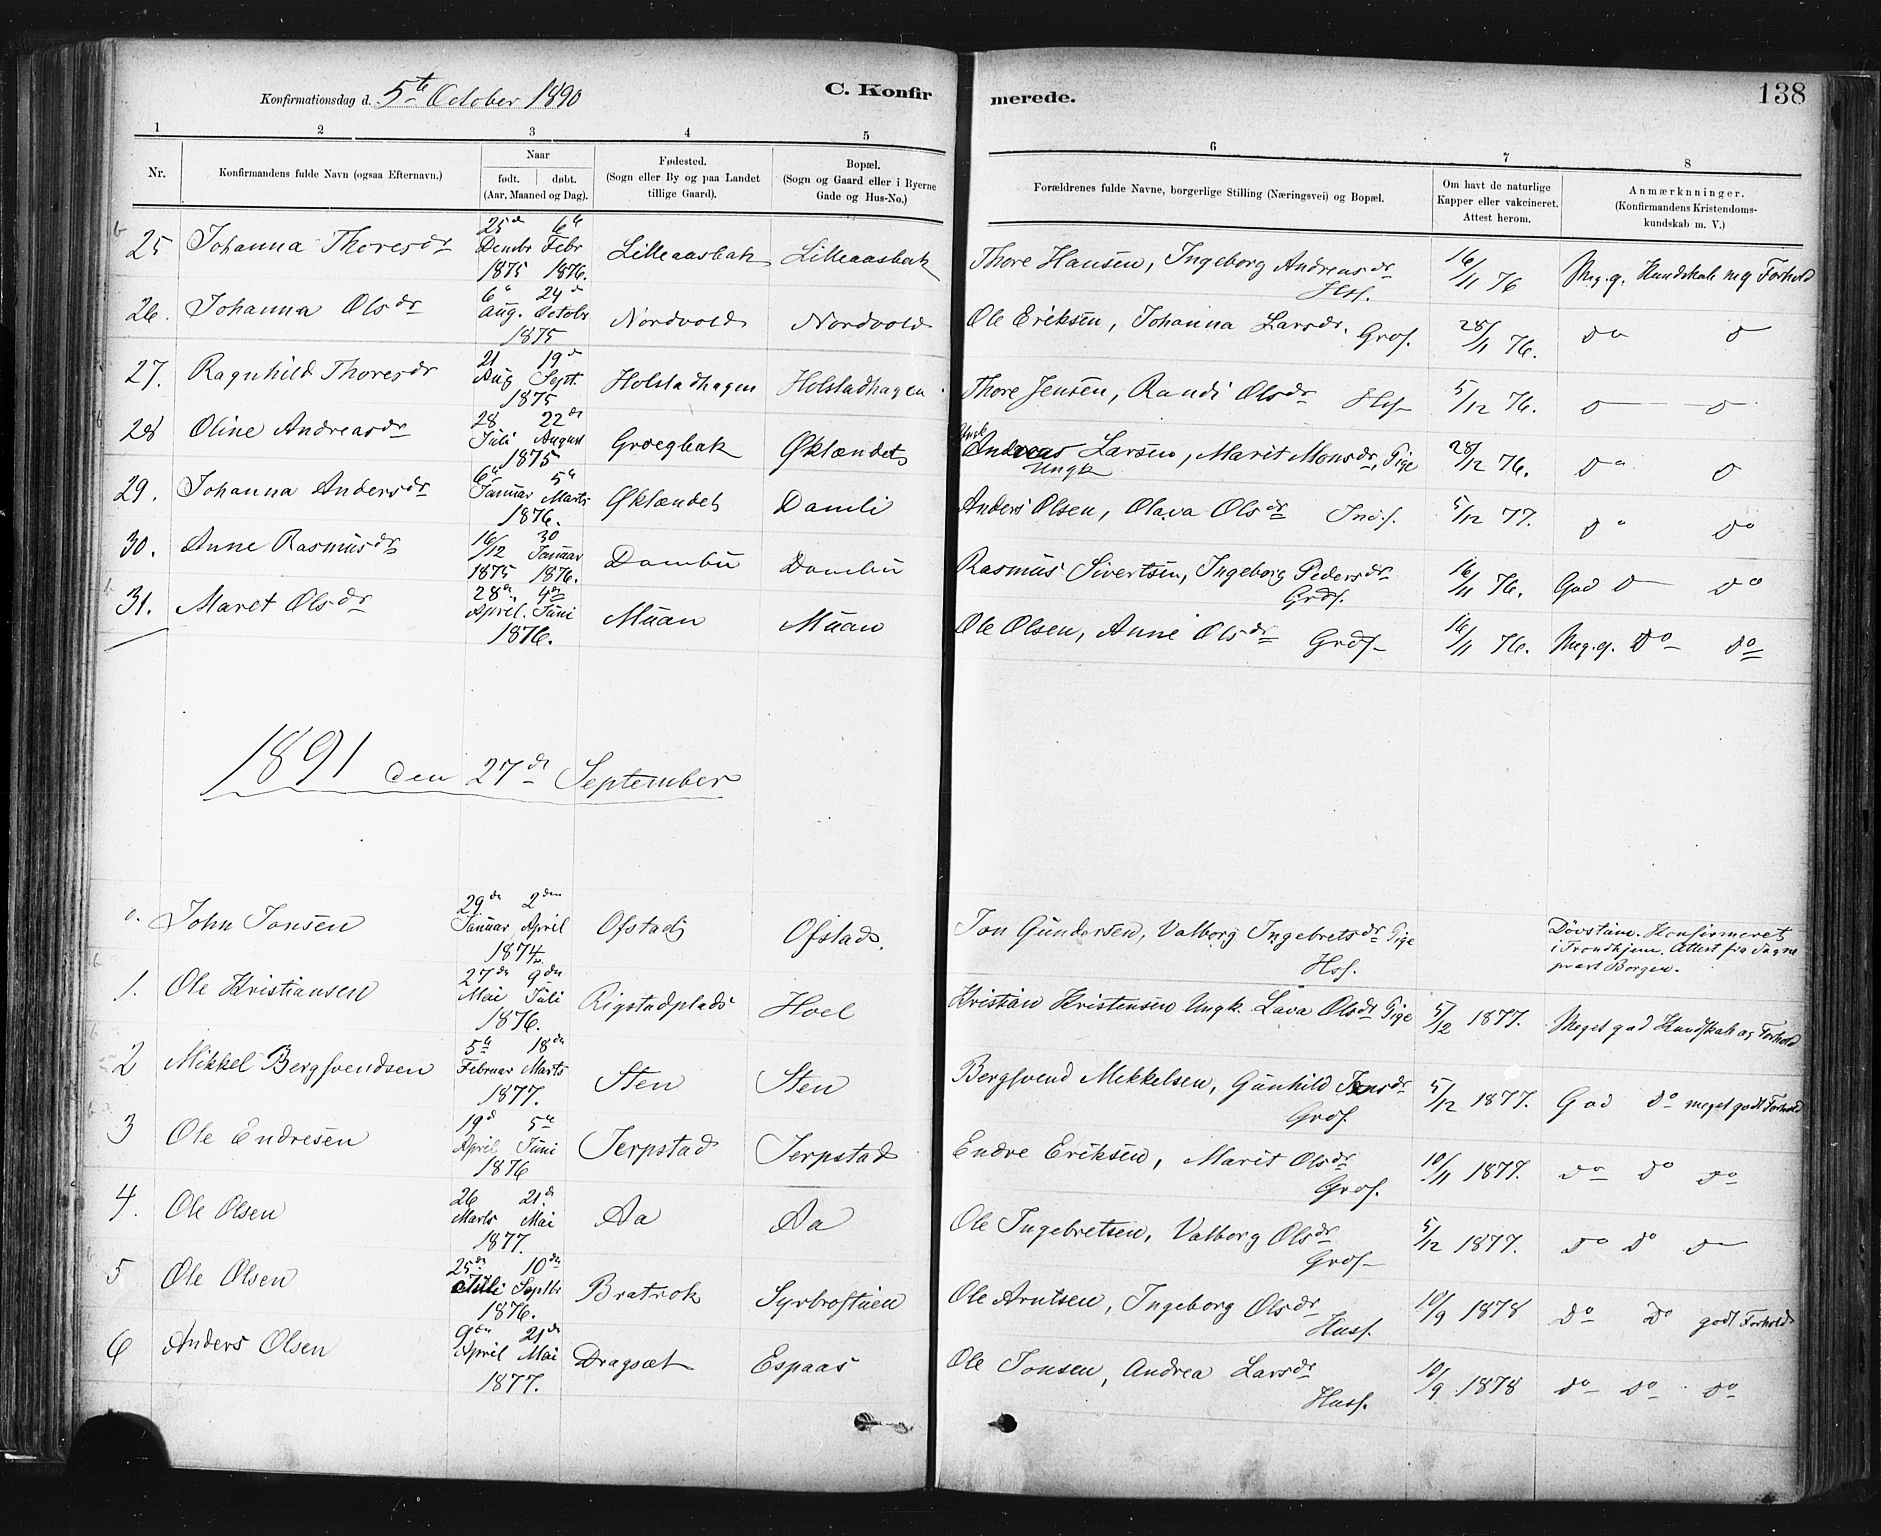 Konfirmationsdag d. 5te October 1890
C. Konfirmerede.
138
1 2 3 4 5 6 7 8
Nr. Konfirmandens fulde Navn (ogsaa Efternavn.) Naar født. døbt. (Aar, Maaned og Dag). Fødested. (Sogn eller By og paa Landet tillige Gaard). Bopæl. (Sogn og Gaard eller i Byerne Gade og Hus-No.) Forældrenes fulde Navne, borgerlige Stilling (Næringsvei) og Bopæl. Om havt de naturlige Kapper eller vakcineret. Attest herom. Anmærknninger. (Konfirmandens Kristendomskundskab m. V.)
25 Johanna Thoresdr 25de Decmbr 1875 6te Febr 1876. Lilleaasbak Lilleaasbak Thore Hansen, Ingeborg Andreasdr Hsf. 16/11 76 Meg. g. Kundskab meg Forhold
26. Johanna Olsdr 6te Aug. 24de Octobr 1875 Nordvold Nordvold Ole Eriksen, Johanna Larsdr. Grdf. 28/11 76. do do
27. Ragnhild Thoresdr 21 Aug 19de Sept. 1875 Holstadhagen Holstadhagen Thore Jensen, Randi Olsdr Hsf 5/12 76. do do
28 Oline Andreasdr 28 Juli 22de August 1875 Groegbak Øklændet Andreas Larsen, Ungk Marit Monsdr, Pige 28/12 76. do do
29. Johanna Andersdr 6te Januar 5te Marts 1876. Øklændet Damli Anders Olsen, Olava Olsdr Ind.f. 5/12 77. do do
30. Anne Rasmusdr 16/12 1875 30 Januar 1876. Dambu Dambu Rasmus Sivertsen, Ingeborg Pedersdr Grdf. 16/11 76. God do do
31. Maret Olsdr 28de April. 4de Juni 1876. Muan Muan Ole Olsen, Anne Olsdr Grdf 16/11 76. Meg. g. do do
1891 den 27de September
0. John Jonsen 29de Januar 2den April 1874 Ofstad Ofstad. Jon Gundersen, Valborg Ingebretsdr Pige Hsf. Døvstum. Konfirmeret i Trondhjem. Attest fra Sognepræst Borgen.
1. Ole Kristiansen 27de Mai 9den Juli 1876. Rigstadplads Hoel Kristian Kristensen Ungk. Lava Olsdr Pige 5/12 1877. Meget god Kundskab og Forhold
2 Mikkel Bergsvendsen 5te Februar 18de Marts 1877. Sten Sten Bergsvend Mikkelsen, Gunhild Jensdr Grdf. 5/12 1877. God do meget godt Forhold
3 Ole Endresen 19de April 5te Juni 1876 Jerpstad Jerpstad Endre Eriksen, Marit Olsdr Grdf. 10/11 1877. do do do
4. Ole Olsen 26 Marts 21de Mai 1877. Aa Aa Ole Ingebretsen, Valborg Olsdr Grdf 5/12 1877. do do do
5 Ole Olsen 25de Juli 10de Septbr 1876. Bratrok Ole Arntsen, Ingeborg Olsdr Husf. 10/9 1878 do do godt Forhold
6 Anders Olsen 9de April 21de Mai 1877. Dragsæt Espaas Ole Jonsen, Andrea Larsdr Husf. 10/9 1878 do do do